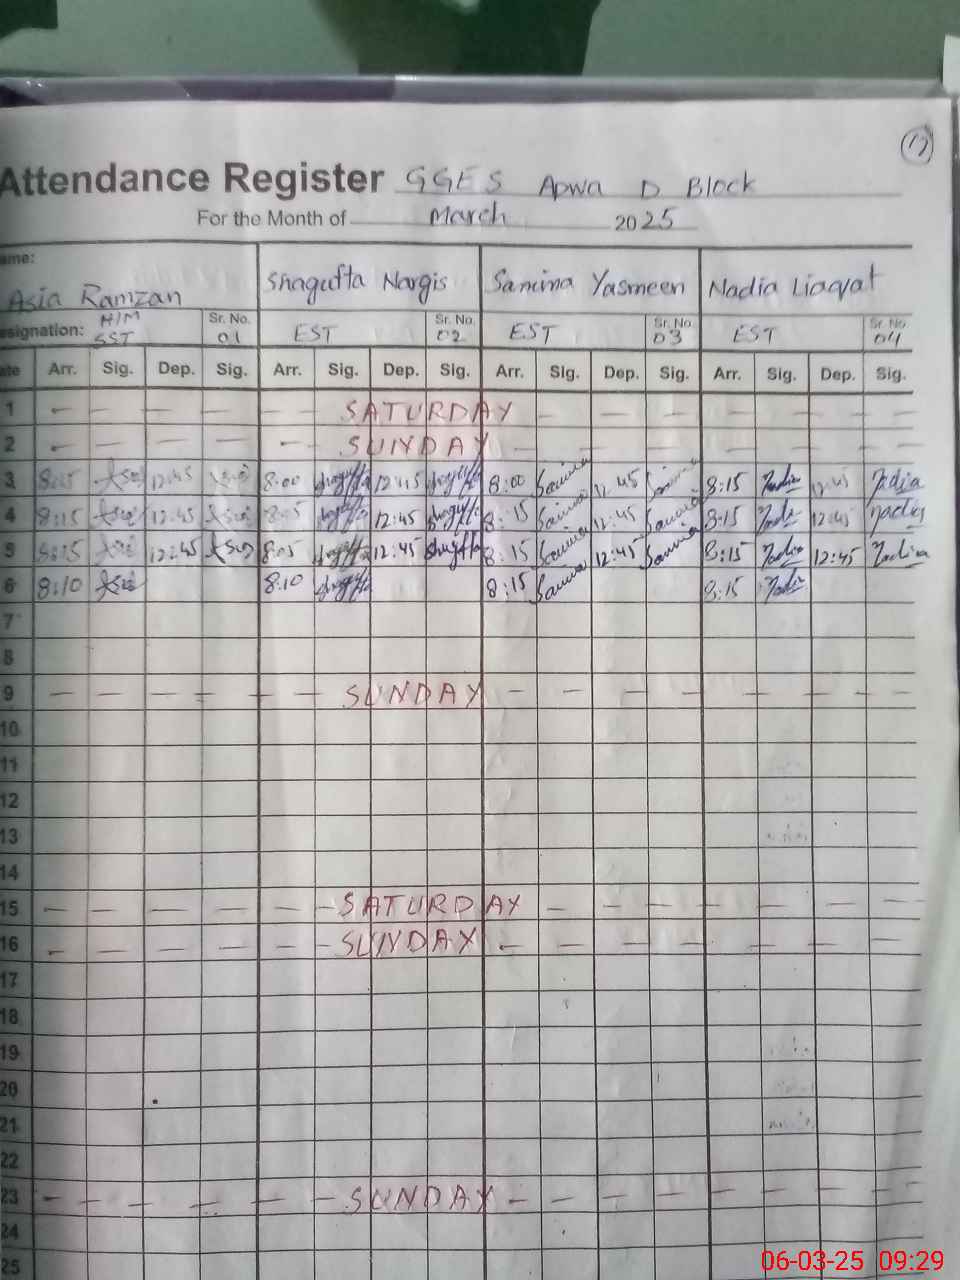 17
Attendance Register GGES Apwa D Block
For the Month of March 2025
ame:
Asia Ramzan Shagufta Nargis Samina Yasmeen Nadia Liaqat
esignation: H/M SST Sr. No. 01 EST Sr. No. 02 EST Sr. No. 03 EST Sr. No. 04
ate Arr. Sig. Dep. Sig. Arr. Sig. Dep. Sig. Arr. Sig. Dep. Sig. Arr. Sig. Dep. Sig.
1 SATURDAY
2 SUNDAY
3 8:15 12:45 8:00 Shagufta 12:45 Shagufta 8:00 Samina 12:45 Samina 8:15 Nadia 12:45 Nadia
4 8:15 12:45 8:05 Shagufta 12:45 Shagufta 8:15 Samina 12:45 Samina 8:15 Nadia 12:45 Nadia
5 8:15 12:45 8:05 Shagufta 12:45 Shagufta 8:15 Samina 12:45 Samina 8:15 Nadia 12:45 Nadia
6 8:10 8:10 Shagufta 8:15 Samina 8:15 Nadia
7
8
9 SUNDAY
10
11
12
13
14
15 SATURDAY
16 SUNDAY
17
18
19
20
21
22
23 SUNDAY
24
25
06-03-25 09:29